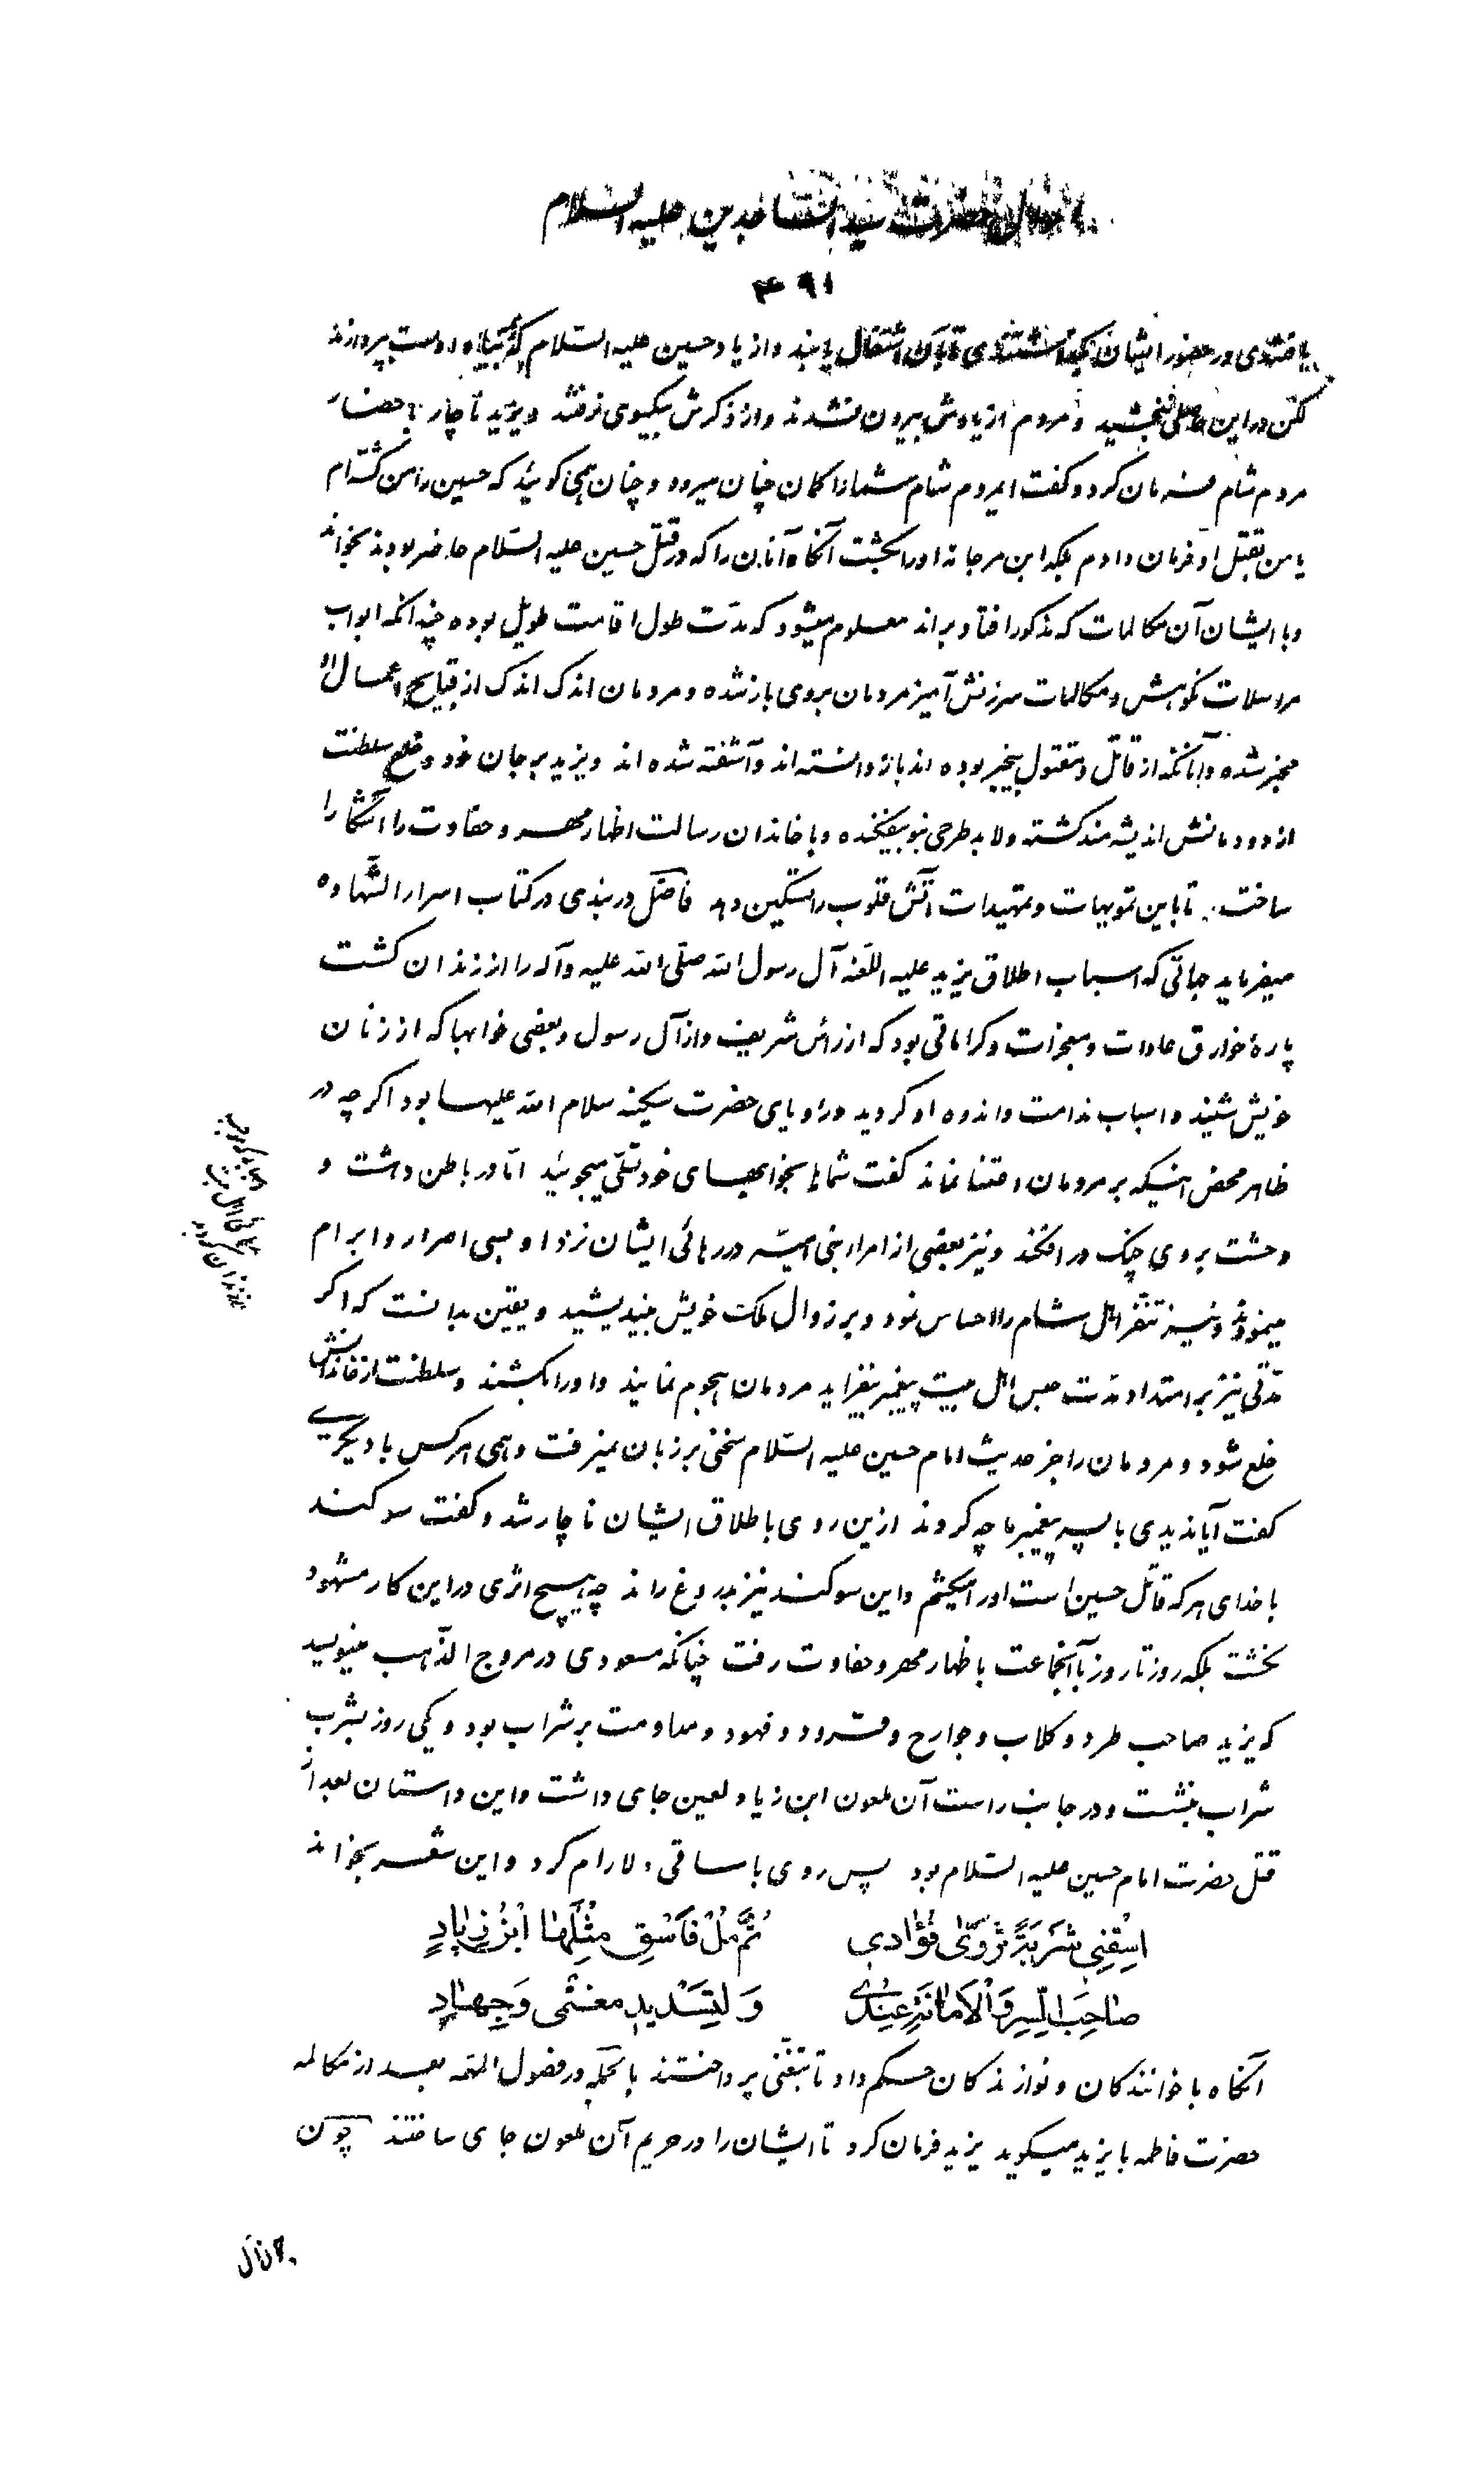 احوال حضرت سید الساجدین علیه السلام
۴۹۱
در حضور ایشان بآن اشتغال یابند و از یاد حسین علیه السلام
لکن در این حاصلی نبخشید و مردم از یادش بیرون نشدند و از ذکرش بیکسوی نرفتند و یزید ناچار باحضار
مردم شام فرمان کرد و کفت ایمردم شام شما را کمان چنان میرود و چنان همی کوئید که حسین را من کشته‌ام
یا من بقتل او فرمان دادم بلکه ابن مرجانه او را بکشت آنکاه آنانرا که در قتل حسین علیه السلام حاضر بودند بخواند
و با ایشان آن مکالمات که مذکور افتاد براند معلوم میشود که مدت طول اقامت طویل بوده چندانکه ابواب
مراسلات نکوهش و مکالمات سرزنش آمیز مردمان بروی باز شده و مردمان اندک اندک از قبایح اعمال او
مخبر شده و آنانکه از قاتل و مقتول بیخبر بوده اند باز دانسته اند و آشفته شده اند و یزید بر جان خود و خلع سلطنت
از دودمانش اندیشه مند کشته ولابد طرحی نو بیفکنده و با خاندان رسالت اظهار مهر و حفاوت را آشکارا
ساخت تا باین تمویهات و تمهیدات آتش قلوب را تسکین دهد فاضل دربندی در کتاب اسرار الشهاده
میفرماید جهاتی که اسباب اطلاق یزید علیه اللعنه آل رسول الله صلی الله علیه و آله را از زندان کشت
پارهٔ خوارق عادات و معجزات و کراماتی بود که از رأس شریف و از آل رسول و بعضی خوابها که از زنان
خویش شنید و اسباب ندامت و اندوه او کردید و رؤیای حضرت سکینه سلام الله علیها بود اکرچه در
ظاهر محض اینکه بر مردمان اعتنا نماند کفت شماها بخوابهای خود تسلی میجوئید اما در باطن دهشت و
وحشت بروی چنک در افکند و نیز بعضی از امراء بنی امیه در رهائی ایشان نزد او بسی اصرار و ابرام
مینمودند و نیز تنفر اهل شام را احساس نمود و بر زوال ملک خویش بیندیشید و یقین بدانست که اکر
مدتی نیز بر امتداد مدت حبس اهل بیت پیغمبر بیفزاید مردمان هجوم نمایند و او را بکشند و سلطنت از خاندانش
خلع شود و مردمان را جز حدیث امام حسین علیه السلام سخنی بر زبان نمیرفت و همی هر کس با دیکری
کفت آیا ندیدی با پسر پیغمبر ما چه کردند از این روی باطلاق ایشان ناچار شد و کفت سوکند
با خدای هر که قاتل حسین است او را میکشم و این سوکند نیز بدروغ راند چه هیچ اثری در این کار مشهود
نکشت بلکه روز تا روز با آنجماعت باظهار مهر و حفاوت رفت چنانکه مسعودی در مروج الذهب مینویسد
که یزید صاحب طرد و کلاب و جوارح و قرود و فهود و مداومت بر شراب بود و یکی روز بشرب
شراب بنشست و در جانب راست آن ملعون ابن زیاد لعین جای داشت و این داستان بعد از
قتل حضرت امام حسین علیه السلام بود پس روی با ساقی دلارام کرد و این شعر بخواند
اِسْقِنِی شَرْبَةً تُرَوّی فُؤادی ثُمَّ مِلْ فَاَسْقِ مِثْلَهٰا اِبْنَ زِیٰادٍ
صٰاحِبَ السِّرِ وَالْاَمٰانَةِ عِنْدی وَ لِتَسْدیدِ مغنمی وَ جِهٰادٍ
آنکاه با خوانندکان و نوازندکان حکم داد تا بتغنی پرداختند بالجمله در فصول المهمه بعد از مکالمه
حضرت فاطمه با یزید میکوید یزید فرمان کرد تا ایشان را در حریم آن ملعون جای ساختند چون